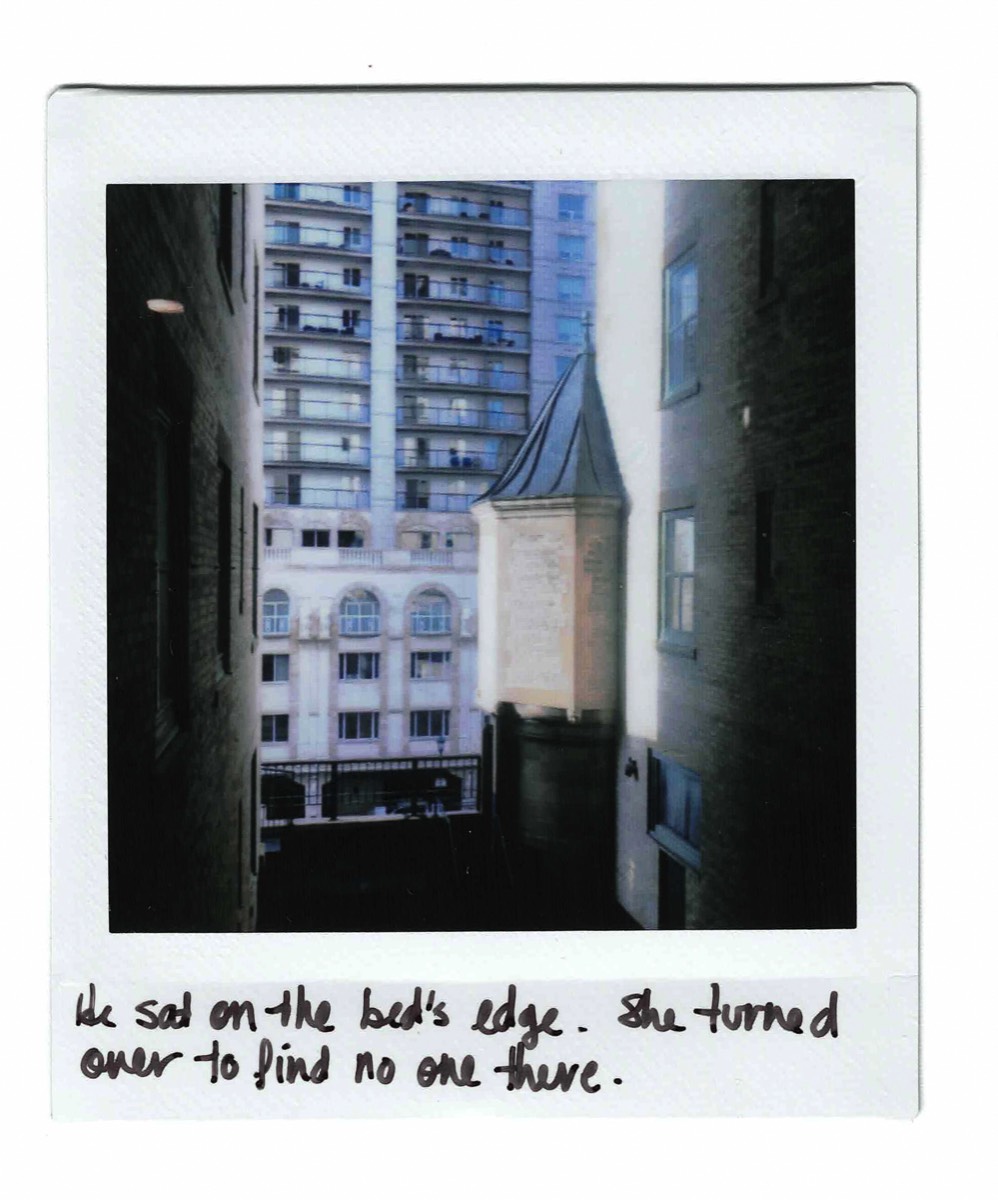 He sat on the bed's edge. She turned
over to find no one there.